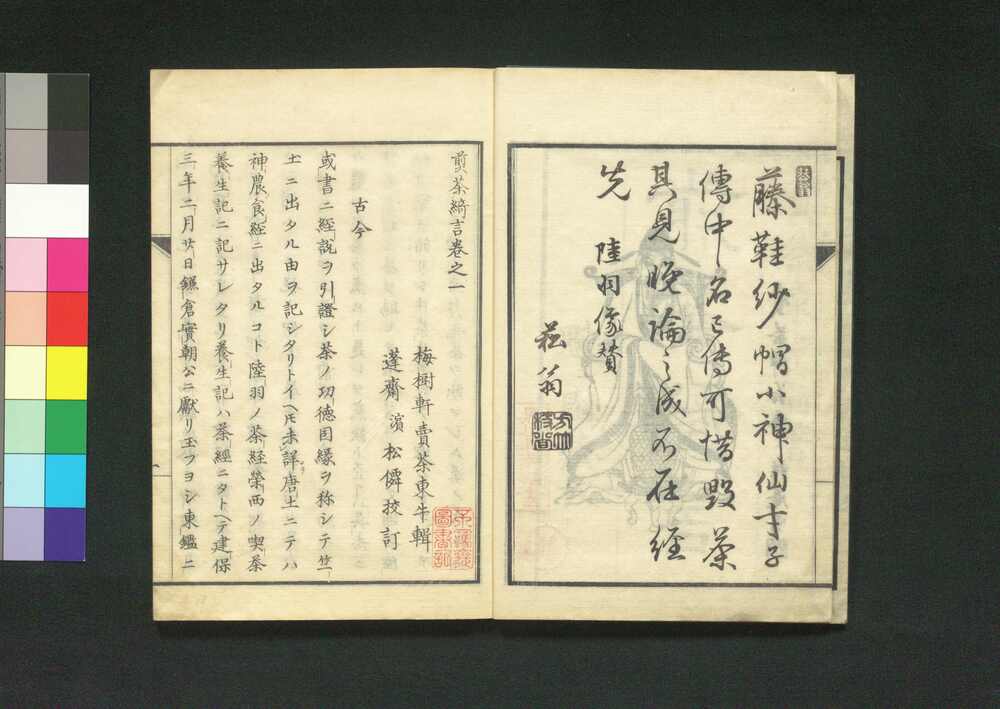 藤鞋紗帽小神仙士子
傳中名已傳可惜毀茶
具見晚論之成不在経
先
陸羽像賛
菘翁
煎茶綺言巻之一
梅樹軒賣茶東牛輯
蓬齋濵松僲挍訂
古今
或書ニ経説ヲ引證シ茶ノ功徳因縁ヲ称シテ竺
土ニ出タル由ヲ記シタリトイヘ𪜈未詳唐土ニテハ
神農食経ニ出タルコト陸羽ノ茶経榮西ノ喫茶
養生記ニ記サレタリ養生記ハ茶經ニタトヘテ建保
三年二月廿日鎌倉實朝公ニ獻リ玉フヨシ東鑑ニ